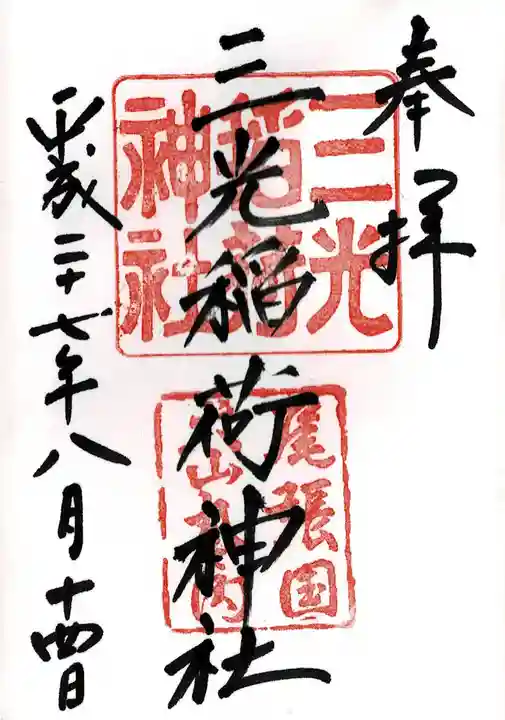 奉拝
三光稲荷神社
平成二十七年八月十四日
三光
稲荷
神社
尾張国
犬山城内